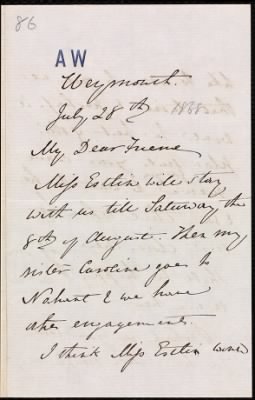 86
A W
Weymouth.
July 28th 1868
My Dear Friend
Miss Estlin will stay
with us till Saturday the
8th of August. Then my
sister Caroline goes to
Nahant & we have
other engagements.
I think Miss Estlin would